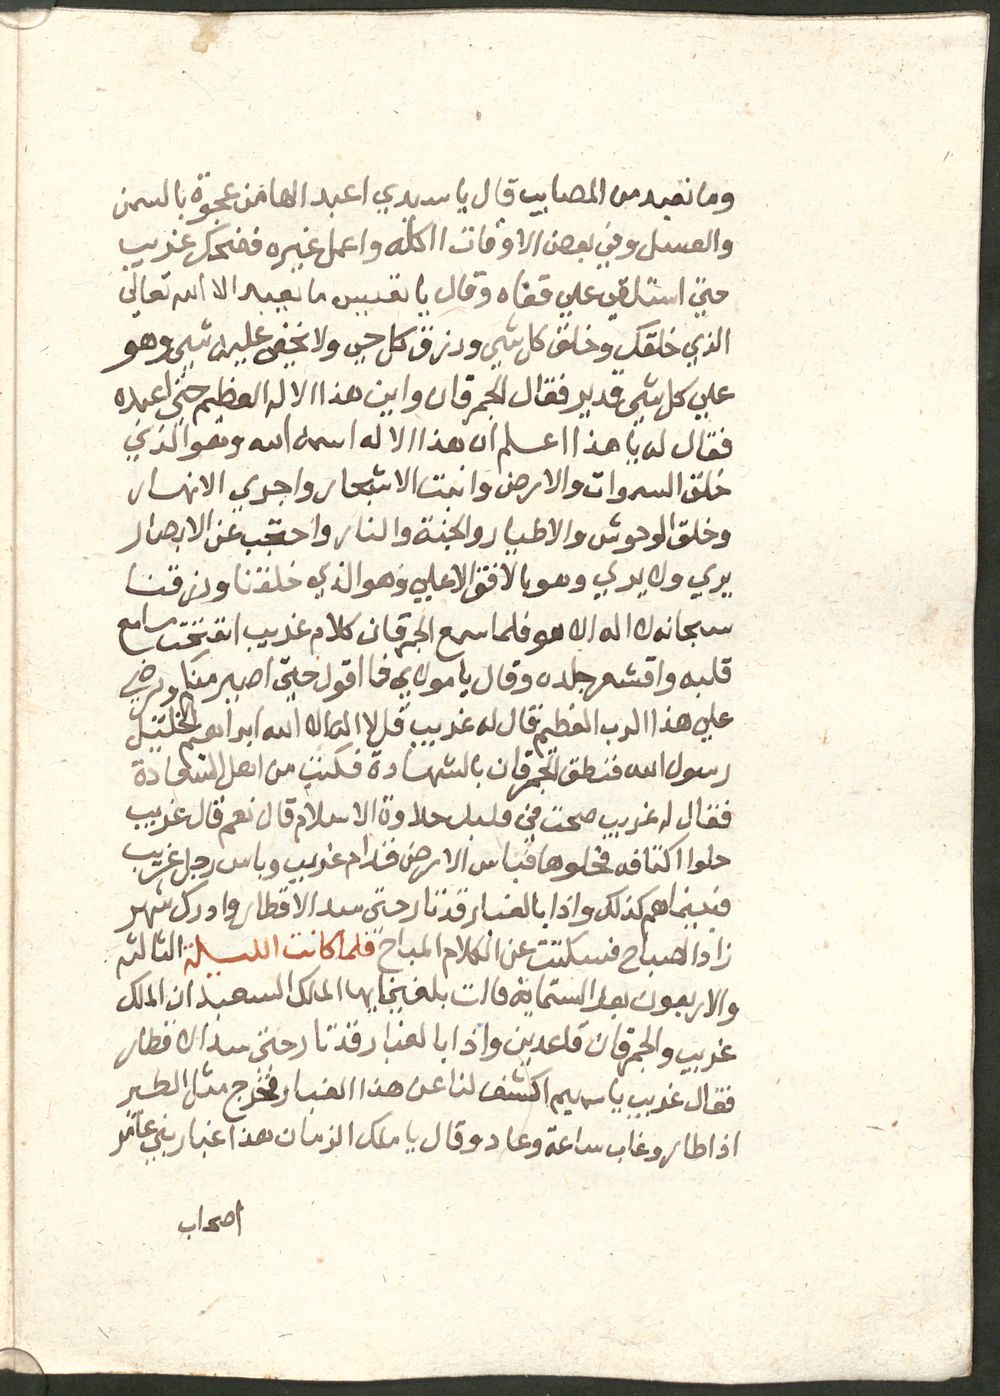 وما تعبد من المصايب قال يا سيدي اعبد الها من عجوة بالسمن
والعسل وفي بعض الاوقات ااكله واعمل غيره فضحك غريب
حتي استلقي علي قفاه وقال يا تعيس ما يعبد الا الله تعالي
الذي خلقك وخلق كل شي ورزق كل حي ولا يخفي عليه شي وهو
علي كل شي قدير فقال الجمرقان واين هذا الاله العظيم حتي اعبده
فقال له يا هذا اعلم ان هذا الاله اسمه الله وهو الذي
خلق السموات والارض وانبت الاشجار واجري الانهار
وخلق الوحوش والاطيار والجنة والنار واحتجب عن الابصار
يري ولا يري وهو بالافق الاعلي وهو الذي خلقنا ورزقنا
سبحانه لا اله الا هو فلما سمع الجمرقان كلام غريب انفتحت مسامع
قلبه واقشعر جلده وقال يا مولاي فما اقول حتي اصير منكم ويرضي
علي هذا الرب العظيم قال له غريب قل لا اله الا الله ابراهيم الخليل
رسول الله فنطق الجمرقان بالشهادة فكتب من اهل السعادة
فقال له غريب صحت في قلبك حلاوة الاسلام قال نعم قال غريب
حلوا اكتافه فحلوها فباس الارض قدام غريب وباس رجل غريب
فبينما هم كذلك واذا بالغبار قد ثار حتي سد الاقطار وادرك شهر
زاد الصباح فسكتت عن الكلام المباح فلما كانت الليلة الثالثه
والاربعون بعد الستماية قالت بلغني ايها الملك السعيد ان الملك
غريب والجمرقان قاعدين واذا بالغبار قد ثار حتي سد الاقطار
فقال غريب يا سهيم اكشف لنا عن هذا الغبار فخرج مثل الطير
اذا طار وغاب ساعة وعاد وقال يا ملك الزمان هذا غبار بني عامر
اصحاب